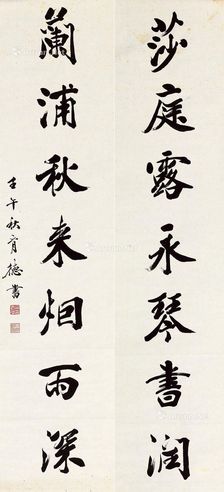 莎庭露永琴書潤
蘭浦秋来烟雨深
壬午秋育德書